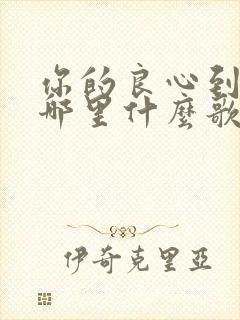 你的良心到
哪里什麼歌
伊奇克里亞